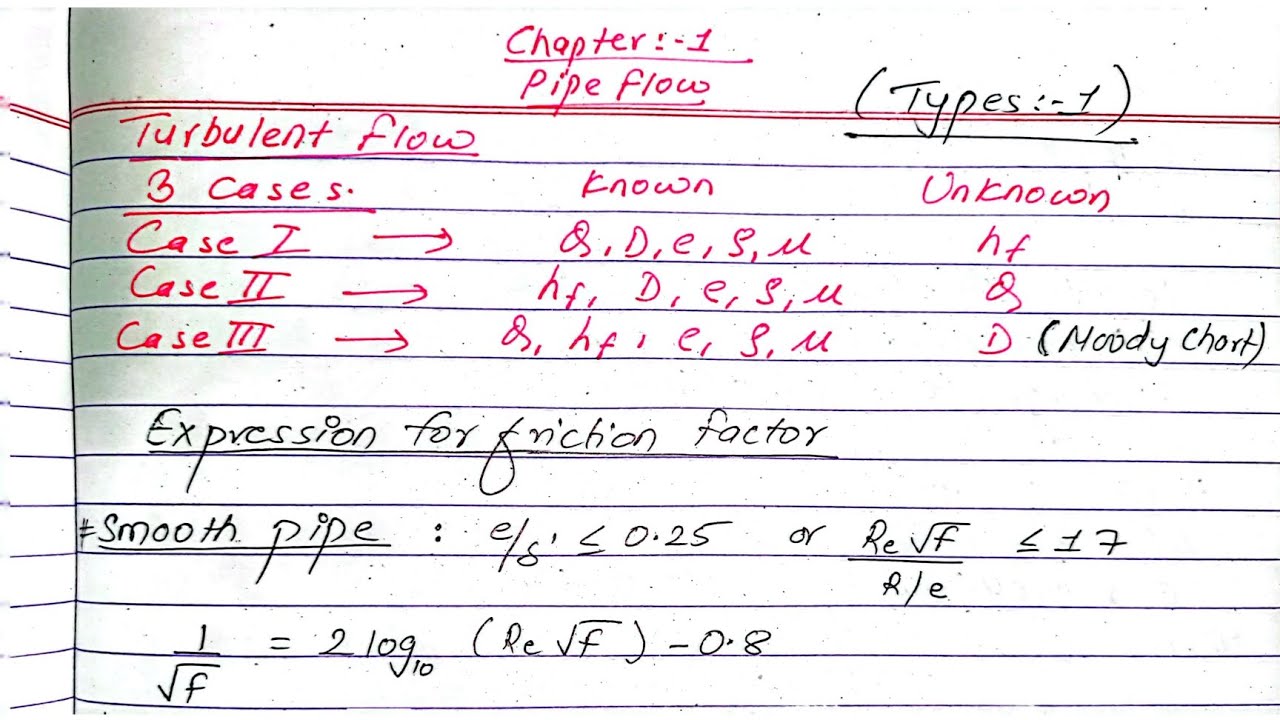 Chapter:-1
Pipe flow
(Types:-1)
Turbulent flow
3 Cases. Known Unknown
Case I → Q, D, e, ρ, μ hf
Case II → hf, D, e, ρ, μ Q
Case III → Q, hf, e, ρ, μ D (Moody Chart)
Expression for friction factor
# Smooth pipe : e/δ' ≤ 0.25 or Re√f / R/e ≤ 17
1/√f = 2 log₁₀ (Re√f) - 0.8